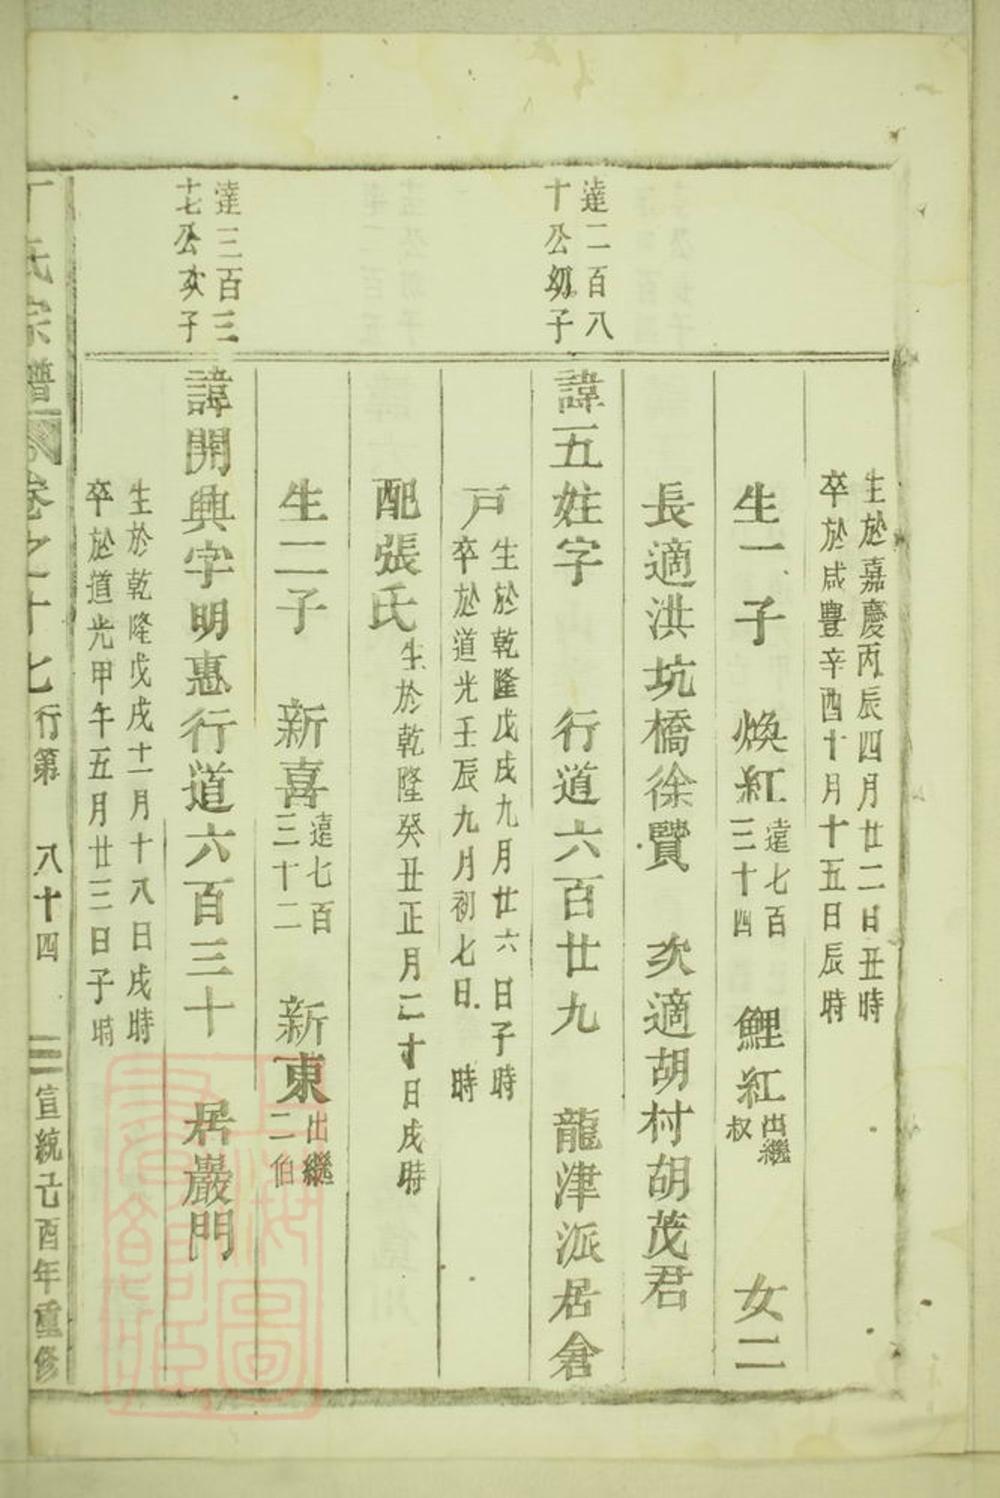 生於嘉慶丙辰四月廿二日丑時
卒於咸豊辛酉十月十五日辰時
生一子 煥紅 達七百三十四 鯉紅 出繼叔 女二
長適洪坑橋徐賢 次適胡村胡茂君
達二百八十公幼子
諱五姓字 行道六百廿九 龍津派居倉
戸 生於乾隆戊戌九月廿六日子時
卒於道光壬辰九月初七日 時
配張氏 生於乾隆癸丑正月二十日戌時
生二子 新喜 達七百三十二 新東 出繼二伯
達三百三十七公次子
諱開興字明惠行道六百三十 居巖門
生於乾隆戊戌十一月十八日戌時
卒於道光甲午五月廿三日子時
丁氏宗譜 卷之二十七 行第 八十四 宣統己酉年重修